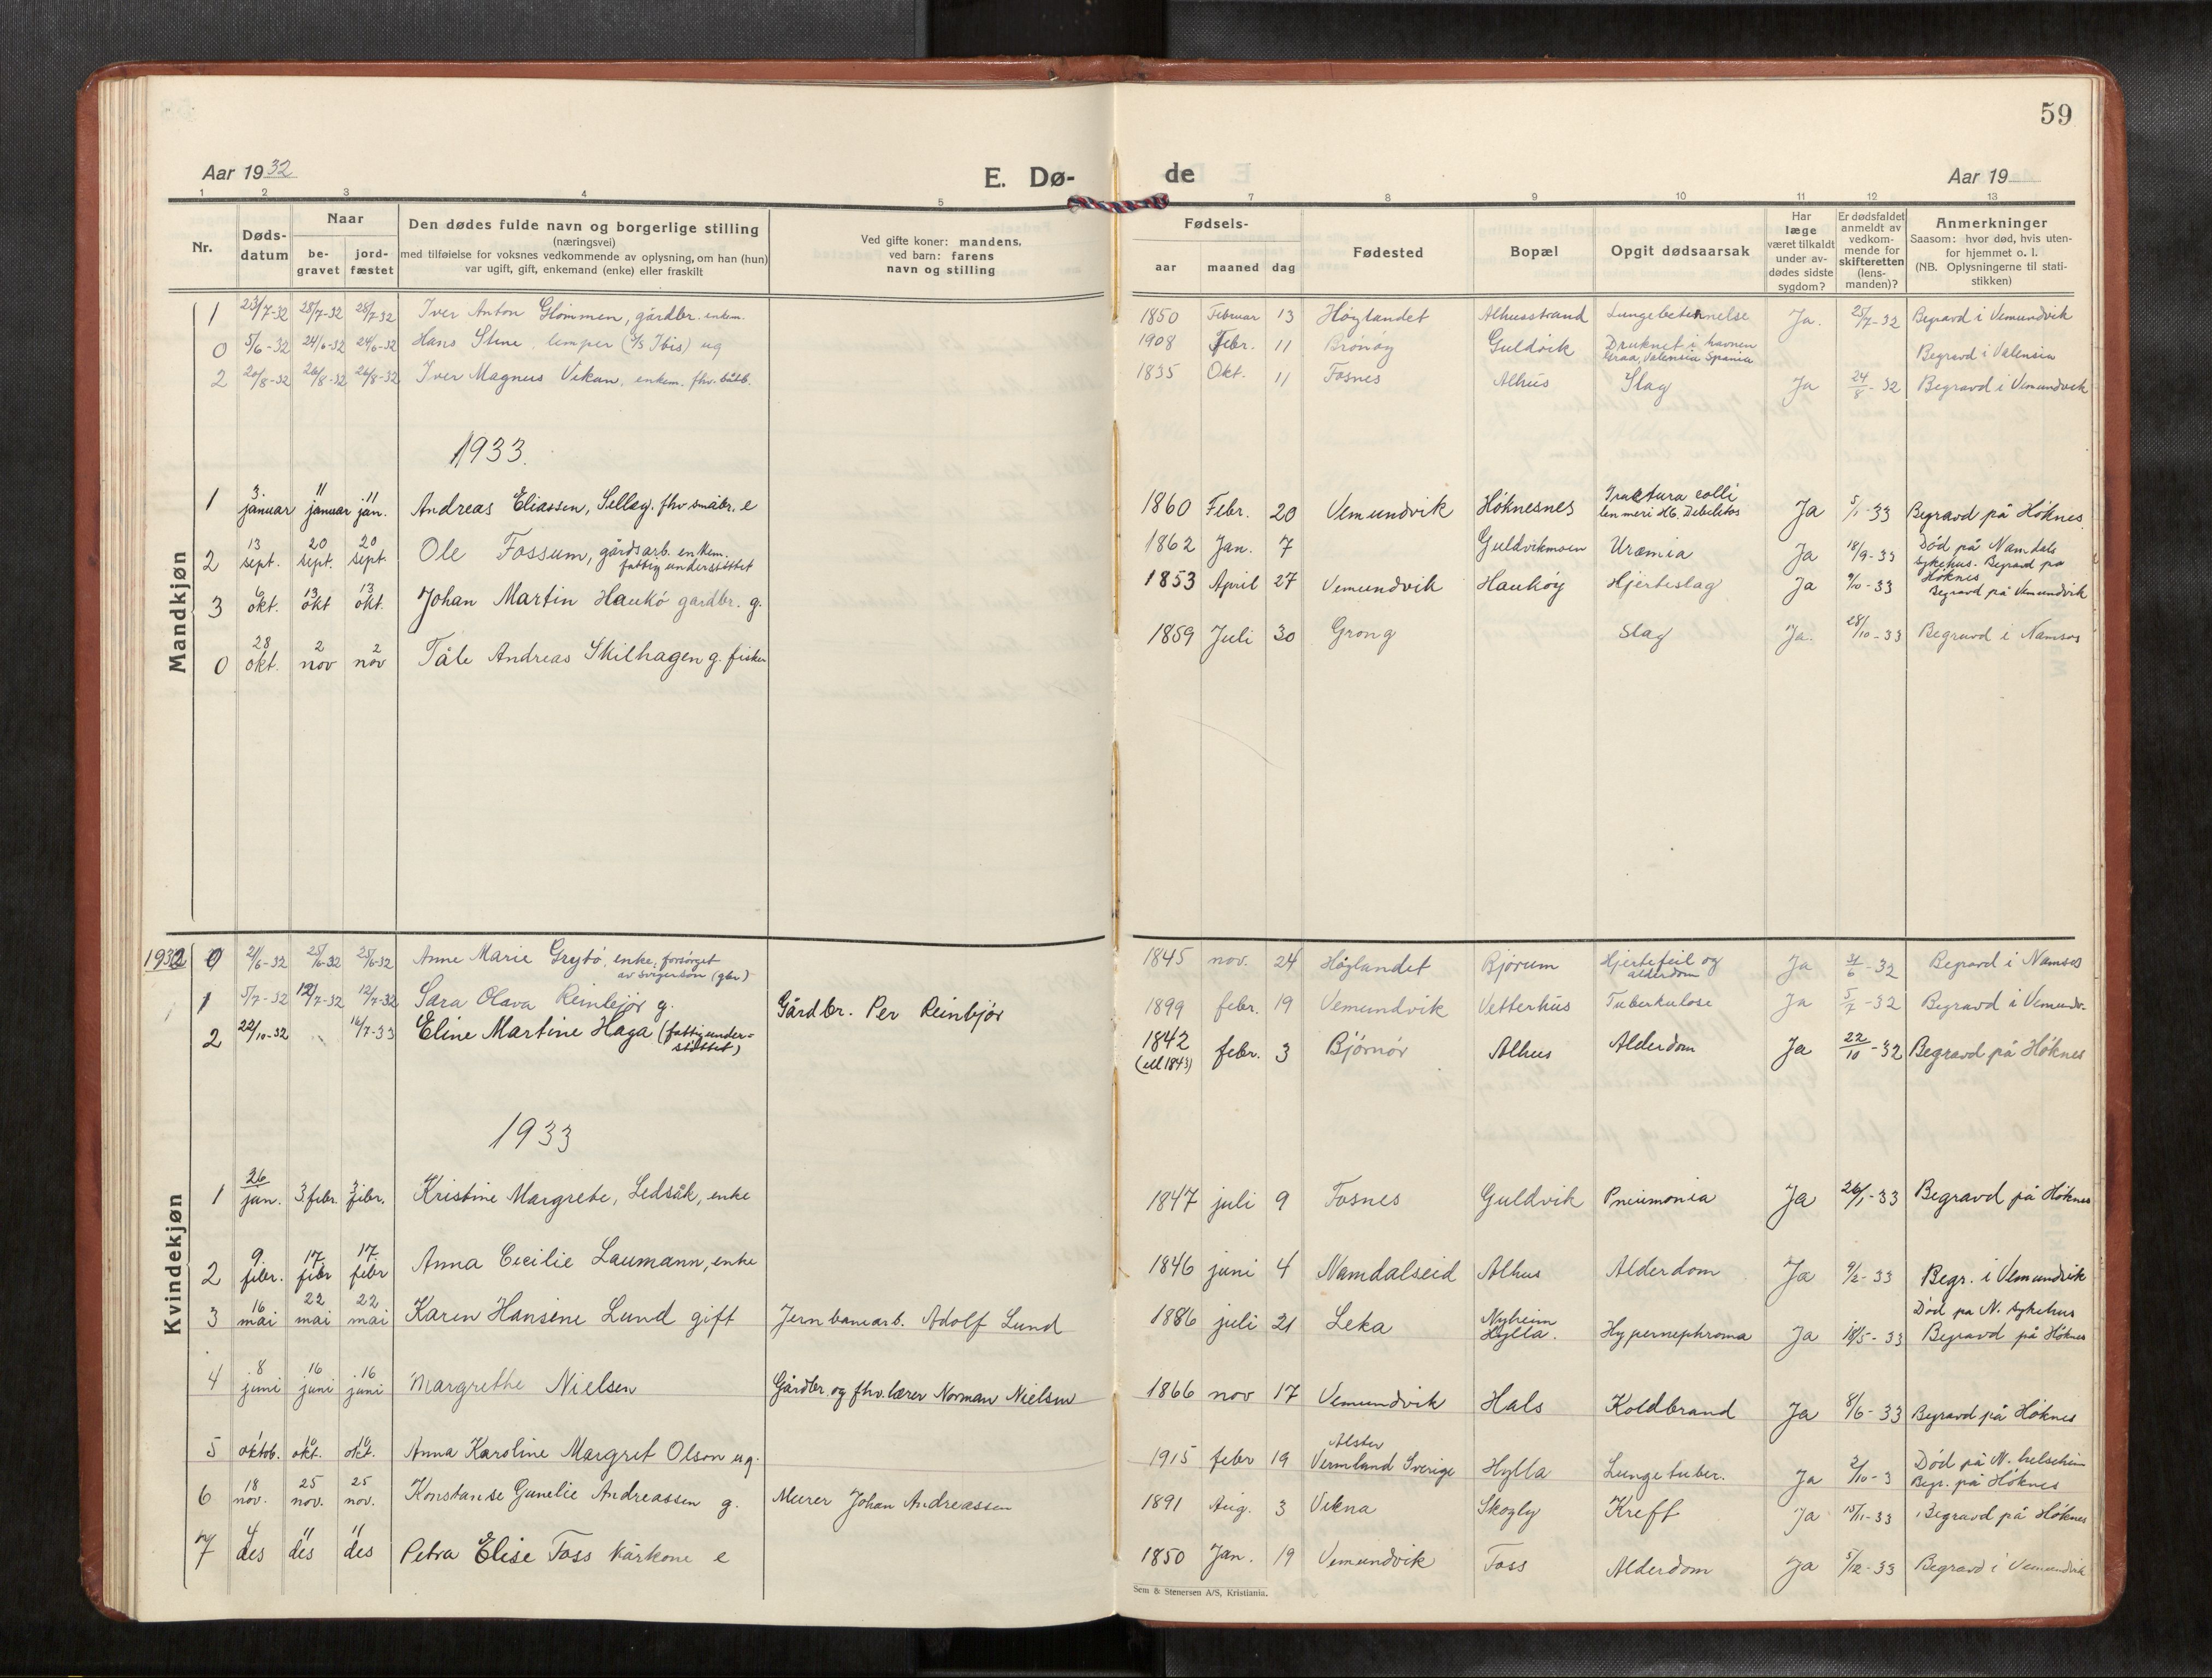 59
Aar 1932
E. Dø-
de
Aar 19
1 2 3 4 5 7 8 9 10 11 12 13
Nr.
Døds-
datum
Naar
be-
gravet
jord-
fæstet
Den dødes fulde navn og borgerlige stilling
(næringsvei)
med tilføielse for voksnes vedkommende av oplysning, om han (hun)
var ugift, gift, enkemand (enke) eller fraskilt
Ved gifte koner: mandens,
ved barn: farens
navn og stilling
Fødsels-
aar maaned dag
Fødested
Bopæl
Opgit dødsaarsak
Har
læge
været tilkaldt
under av-
dødes sidste
sygdom?
Er dødsfaldet
anmeldt av
vedkom-
mende for
skifteretten
(lens-
manden)?
Anmerkninger
Saasom: hvor død, hvis uten-
for hjemmet o. l.
(NB. Oplysningerne til stati-
stikken)
Mandkjøn
1 23/7-32 28/7-32 28/7-32 Iver Anton Glømmen, gårdbr. enkem. 1850 Februar 13 Høylandet Alhusstrand Lungebetennelse Ja. 25/7-32 Begravd i Vemundvik
0 5/6-32 24/6-32 24/6-32 Hans Stene, lemper (S/S Ibis) ug 1908 Febr. 11 Brönöy Guldvik Druknet i havnen
Graa, Valensia Spania Begravd i Valensia
2 20/8-32 26/8-32 26/8-32 Iver Magnus Vikan, enkem. fhv. båtb. 1835 Okt. 11 Fosnes Alhus Slag Ja 24/8-32 Begravd i Vemundvik
1933.
1 3. januar 11 januar 11 jan. Andreas Eliassen, Selløy. fhv. småbr. e 1860 Febr. 20 Vemundvik Høknesnes Fractura colli
Debilitas Ja 5/1-33 Begravd på Høknes
2 13 sept. 20 sept. 20 sept. Ole Fossum, gårdsarb. enkem.
fattigunderstöttet 1862 Jan. 7 Guldvikmoen Uræmia Ja 18/9-33 Død på Namdals
sykehus. Begravd på
Höknes
3 6 okt. 13 okt 13 okt. Johan Martin Haukö gardbr. g. 1853 April 27 Vemundvik Hauköy Hjerteslag Ja 9/10-33 Begravd på Vemundvik
0 28 okt. 2 nov 2 nov Tåle Andreas Skilhagen g. fisker 1859 Juli 30 Grong Slag Ja. 28/10-33 Begravd i Namsos
Kvindekjøn
1932 0 21/6-32 25/6-32 25/6-32 Anne Marie Grytö, enke, forsörget
av svigersön (gbr) 1845 nov. 24 Høylandet Bjørum Hjertefeil og
alderdom Ja 21/6-32 Begravd i Namsos
1 5/7-32 12/7-32 12/7-32 Sara Olava Reinbjör g. Gårdbr. Per Reinbjör 1899 febr. 19 Vemundvik Vetterhus Tuberkulose Ja 5/7-32 Begravd i Vemundv.
2 22/10-32 16/7-33 Eline Martine Haga (fattigunder-
stöttet) 1842
(ell 1843) febr. 3 Björnör Alhus Alderdom Ja 22/10-32 Begravd på Höknes
1933
1 26 jan. 3. febr. 3 febr. Kristine Margrete, Ledsåk, enke 1847 juli 9 Fosnes Guldvik Pneumonia Ja 26/1-33 Begravd på Höknes
2 9. febr. 17 febr 17. febr Anna Cecilie Laumann, enke 1846 juni 4 Namdalseid Alhus Alderdom Ja 9/2-33 Begr. i Vemundvik
3 16 mai 22 mai 22 mai Karen Hansene Lund gift Jernbanearb. Adolf Lund 1886 juli 21 Leka Nyheim
Hylla. Hypernephroma Ja 18/5-33 Død på N. sykehus
Begravd på Höknes
4 8 juni 16 juni 16 juni Margrethe Nielsen Gårdbr. og fhv. lærer Norman Nielsen 1866 nov 17 Vemundvik Hals Koldbrand Ja 8/6-33 Begravd på Höknes
5 1 oktob. 10 okt. 10 okt. Anna Karoline Margret Olson ug. 1915 febr 19 Alster
Vermland Sverige Hylla Lungetuber. Ja 2/10-3 Død på N. helseheim
Begr. på Höknes
6 18 nov. 25 nov. 25 nov. Konstanse Gunelie Andreassen g. Murer Johan Andreassen 1891 Aug. 3 Vikna Skogly Kreft Ja 18/11-33 Begravd på Höknes
7 4 des 11 des 11 des Petra Elise Foss kårkone e 1850 Jan. 19 Vemundvik Foss Alderdom Ja 5/12-33 Begravd i Vemundvik
Sem & Stenersen A/S, Kristiania.